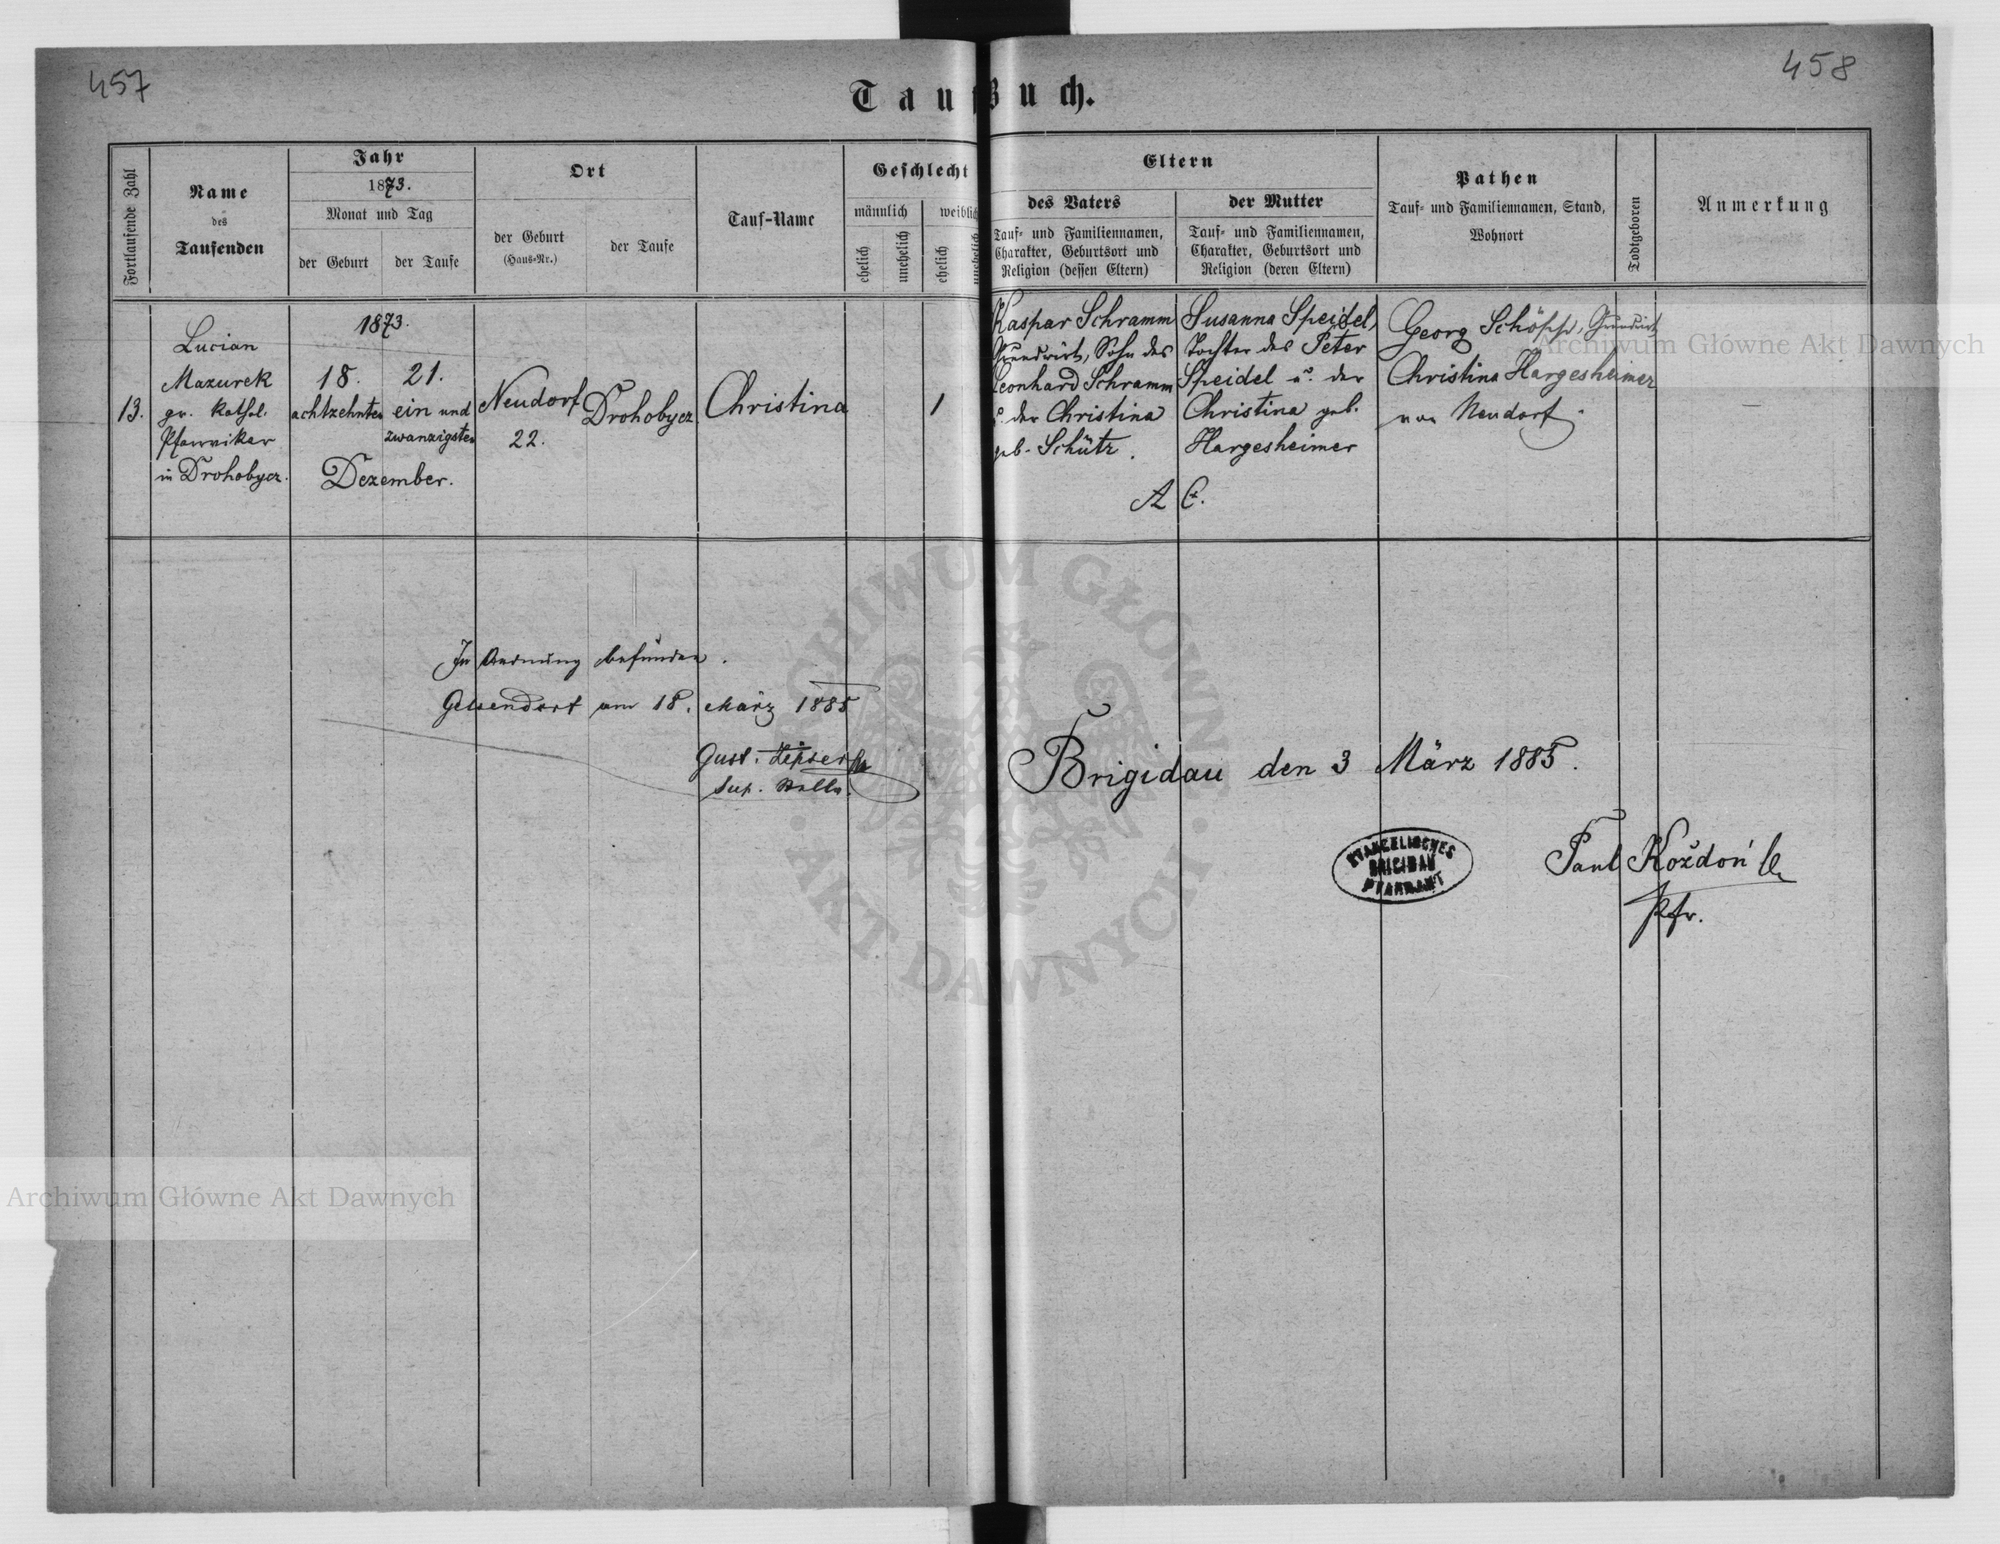 457
458
Taufbuch.
Fortlaufende Zahl
Name
des
Taufenden
Jahr
1873.
Monat und Tag
der Geburt
der Taufe
Ort
der Geburt
(Haus-Nr.)
der Taufe
Tauf-Name
Geschlecht
männlich
weiblich
ehelich
unehelich
ehelich
unehelich
Eltern
des Vaters
Tauf- und Familiennamen,
Charakter, Geburtsort und
Religion (dessen Eltern)
der Mutter
Tauf- und Familiennamen,
Charakter, Geburtsort und
Religion (deren Eltern)
Pathen
Tauf- und Familiennamen, Stand,
Wohnort
Todtgeboren
Anmerkung
13.
Lucian
Mazurek
gr. kathol.
Pfarrvikar
in Drohobycz.
1873.
18.
achtzehnten
21.
ein und
zwanzigsten
Dezember.
Neudorf
22.
Drohobycz
Christina
1
Kaspar Schramm
Grundwirt, Sohn des
Leonhard Schramm
u. der Christina
geb. Schütz.
Susanna Speidel,
Tochter des Peter
Speidel u. der
Christina geb.
Hargesheimer
A.C.
Georg Schöpp, Grundwirt
Christina Hargesheimer
von Neudorf.
—
In Ordnung befunden.
Gelsendorf am 18. März 1885
Gust.
Sup.
Brigidau den 3 März 1885.
EVANGELISCHES
BRIGIDAU
PFARRAMT
Paul Koždoń
Pfr.
Archiwum Główne Akt Dawnych
ARCHIWUM GŁÓWNE
AKT DAWNYCH
Archiwum Główne Akt Dawnych